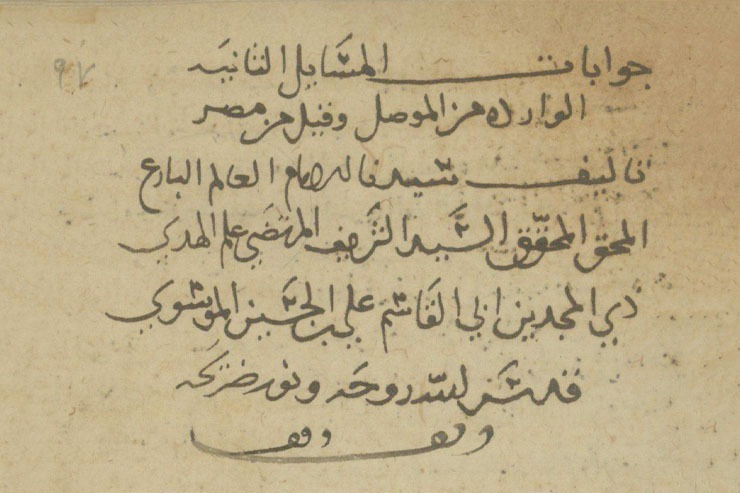 ٩٧
جوابات المسايل الثانيه
الوارده من الموصل وقيل من مصر
تاليف سيدنا الامام العالم البارع
المحق المحقق السيد الشريف المرتضى علم الهدي
ذي المجدين ابي القاسم علي بن الحسين الموسوي
قدس الله روحه ونور ضريحه
وقف وقف